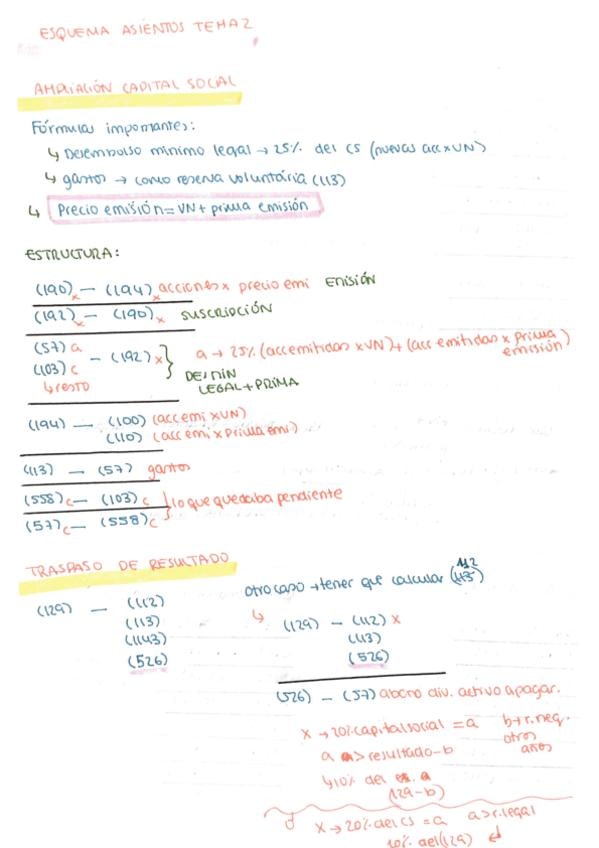 ESQUEMA ASIENTOS TEMA 2
AMPLIACIÓN CAPITAL SOCIAL
Fórmulas importantes:
↳ Desembolso mínimo legal → 25% del CS (nuevas acc x VN)
↳ gastos → como reserva voluntária (113)
↳ Precio emisión = VN + prima emisión
ESTRUCTURA:
(190)x — (194)x acciones x precio emi EMISIÓN
(192)x — (190)x SUSCRIPCIÓN
(57) a
(103) c — (192) x } a → 25% (acc emitidas x VN) + (acc emitidas x prima emisión)
↳ resto DES MIN LEGAL + PRIMA
(194) — (100) (acc emi x VN)
(110) (acc emi x prima emi)
(113) — (57) gastos
(558)c — (103)c } lo que quedaba pendiente
(57)c — (558)c
TRASPASO DE RESULTADO
(129) — (112)
(113)
(1143)
(526)
otro caso → tener que calcular (112)
↳ (129) — (112) x
(113)
(526)
(526) — (57) abono div. activo a pagar.
x → 20% capital social = a b + r. neg. otros años
a > resultado - b
↳ 10% del
(129 - b)
x → 20% del CS = a a > r. legal
10% del (129) ↲